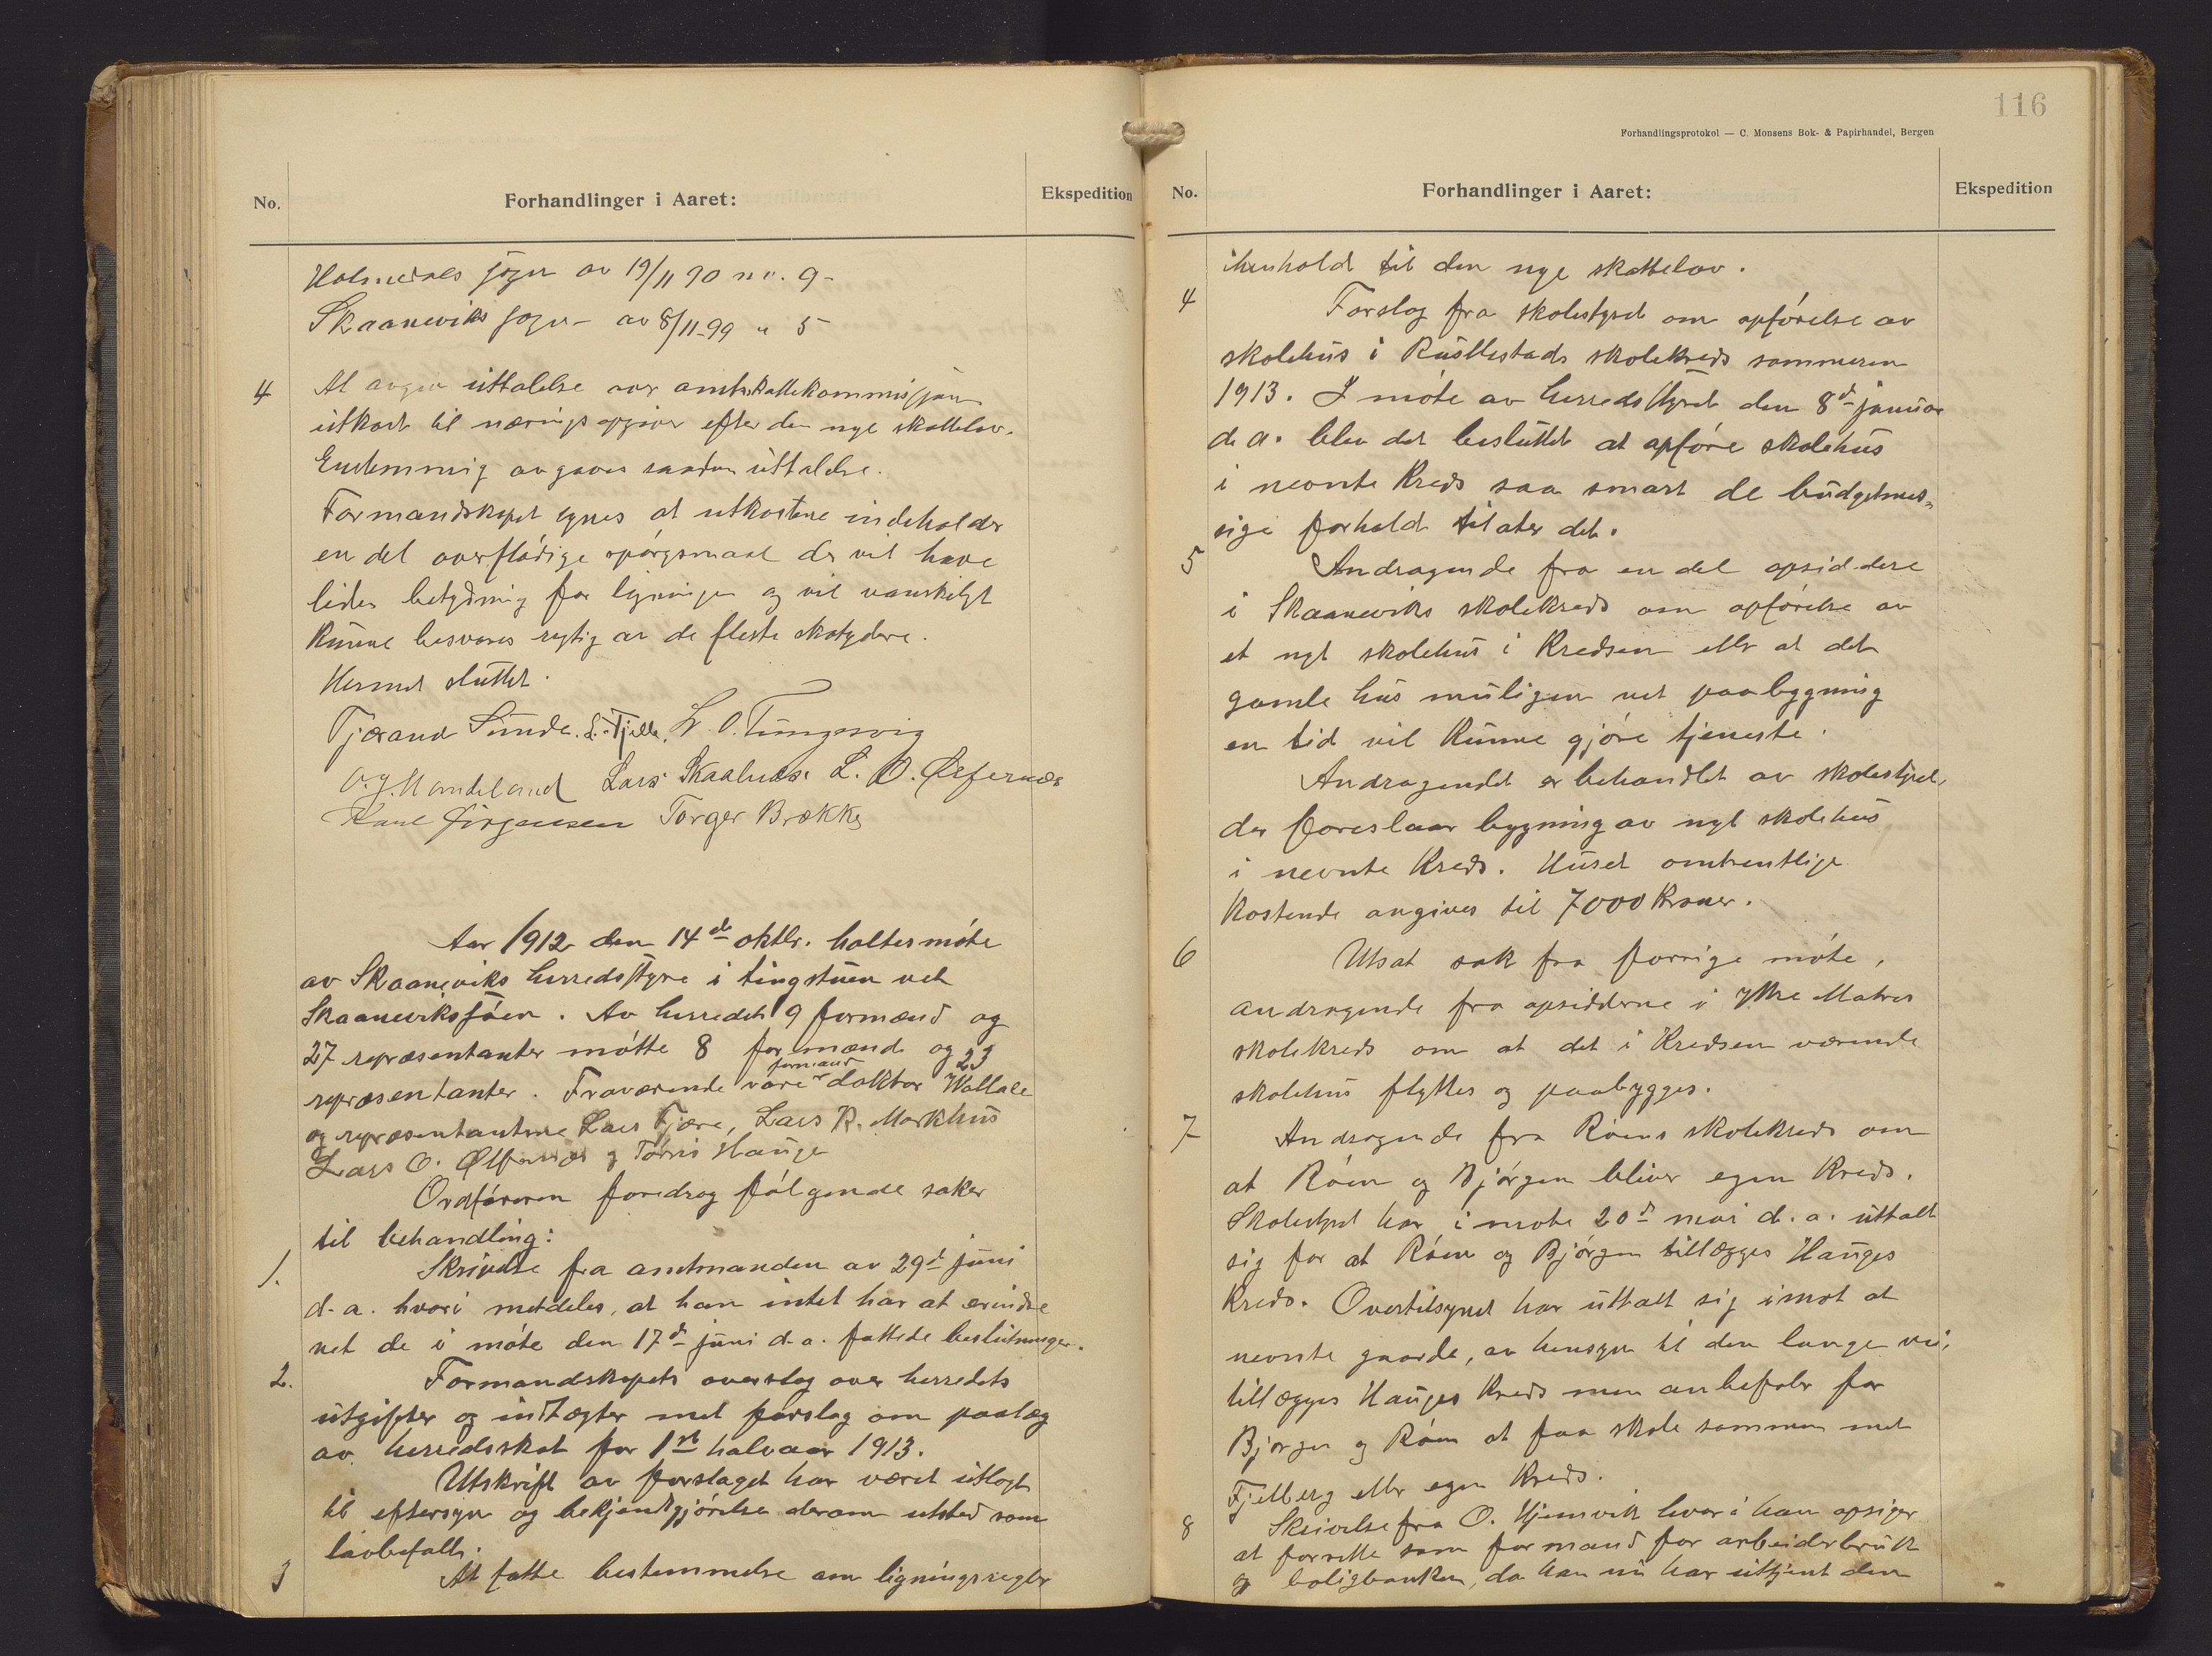 No.
Forhandlinger i Aaret:
Ekspedition
Holmedals sogn av 19/11 90 no. 9-
Skaaneviks sogn - av 8/11-99 " 5
4 At avgiv uttalelse over amtskattekommissjon
utkast til næringsopgiver efter den nye skattelov.
Enstemmig avgaves saadan uttalelse.
Formandskapet synes at utkastene indeholder
en del overflødige spørgsmaal de vil have
liden betydning for ligningen og vil vanskeligt
kunne besvares rigtig av de fleste skatydere.
Hermed sluttet.
Tjærand Sunde. L. Tjelle. L. O. Tungesvig
O. J. Mandeland Lars Skaalnes. L. O. Ølfernæs
Karl Jørgensen Torger Brække
Aar 1912 den 14de oktbr. holtes møte
av Skaaneviks herredsstyre i tingstuen vet
Skaanevikssjøen. Av herredets 9 formænd og
27 repræsentanter møtte 8 formænd og 23
repræsentanter. Fraværende vare formand doktor Wallace
og repræsentantene Lars Fjære, Lars R. Markhus
Lars O. Ølfernæs og Tørris Hauge
Ordføreren foredrog følgende saker
til behandling:
1. Skrivelse fra amtmanden av 29d juni
d. a. hvori meddeles, at han intet har at erindre
vet de i møte den 17d juni d. a. fattede beslutninger.
2. Formandskapets overslag over herredets
utgifter og indtægter med forslag om paalæg
av herredsskat for 1st halvaar 1913.
Utskrift av forslaget har været utlagt
til eftersyn og bekjendtgjørelse derom utsted som
lovbefalt.
3 At fatte bestemmelse om ligningsregler
116
Forhandlingsprotokol — C. Monsens Bok- & Papirhandel, Bergen
No.
Forhandlinger i Aaret:
Ekspedition
ihenhold til den nye skattelov.
4 Forslag fra skolestyret om opførelse av
skolehus i Rullestads skolekreds sommeren
1913. I møte av herredsstyret den 8d januar
d. a. blev det besluttet at opføre skolehus
i nevnte kreds saa snart de budgetmes-
sige forhold tilater det.
5 Andragende fra en del opsiddere
i Skaaneviks skolekreds om opførelse av
et nyt skolehus i kredsen eller at det
gamle hus muligen vet paabygning
en tid vil kunne gjøre tjeneste.
Andragendet er behandlet av skolestyret,
der foreslaar bygning av nyt skolehus
i nevnte kreds. Huset omtrentlige
kostende angives til 7000 kroner.
6 Utsat sak fra forrige møte,
andragende fra opsidderne i Ytre Matres
skolekreds om at det i kredsen værende
skolehus flyttes og paabygges.
7 Andragende fra Røens skolekreds om
at Røen og Bjørgen bliver egen kreds.
Skolestyret har i møte 20d mai d. a. uttalt
sig for at Røen og Bjørgen tillægges Hauges
kreds. Overtilsynet har uttalt sig imot at
nevnte gaarde, av hensyn til den lange vei,
tillægges Hauges kreds men anbefaler for
Bjørgen og Røen at faa skole sammen med
Fjelberg eller egen kreds.
8 Skrivelse fra O. Hjemsvik hvori han opsiger
at forrette som formand for arbeiderbruk
og boligbanken, da han nu har uttjent den